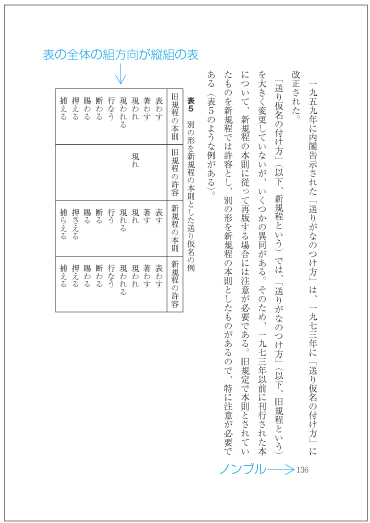 表の全体の組方向が縦組の表
一九五九年に内閣告示された「送りがなのつけ方」は、一九七三年に「送り仮名の付け方」に
改正された。
「送り仮名の付け方」（以下、新規程という）では、「送りがなのつけ方」（以下、旧規程という）
を大きく変更していないが、いくつかの異同がある。そのため、一九七三年以前に刊行された本
について、新規程の本則に従って再版する場合には注意が必要である。旧規定で本則とされてい
たものを新規程では許容とし、別の形を新規程の本則としたものがあるので、特に注意が必要で
ある（表５のような例がある）。
表５　別の形を新規程の本則とした送り仮名の例
旧規程の本則　旧規程の許容　新規程の本則　新規程の許容
表わす　表す　表わす
著わす　著す　著わす
現われ　現れ　現れ　現われ
現われる　現れる　現われる
行なう　行う　行なう
断わる　断る　断わる
賜わる　賜る　賜わる
押える　押さえる　押える
捕える　捕らえる　捕える
ノンブル 136